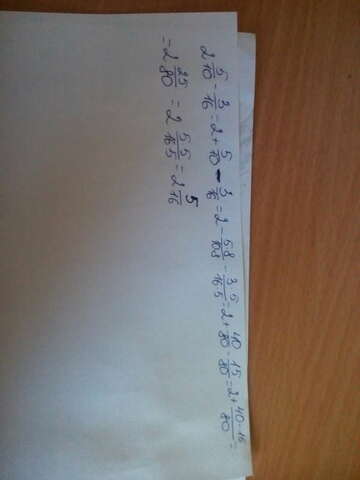 2 5/10 - 3/16 = 2 + 5/10 - 3/16 = 2 - 5·8/10·8 - 3·5/16·5 = 2 + 40/80 - 15/80 = 2 + 40-15/80 =
= 2 25/80 = 2 5·5/16·5 = 2 5/16